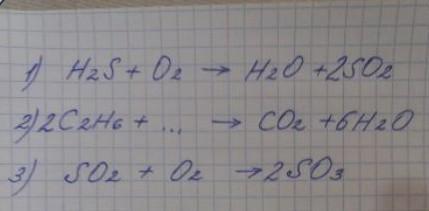 1) H2S + O2 → H2O + 2SO2
2) 2C2H6 + ... → CO2 + 6H2O
3) SO2 + O2 → 2SO3